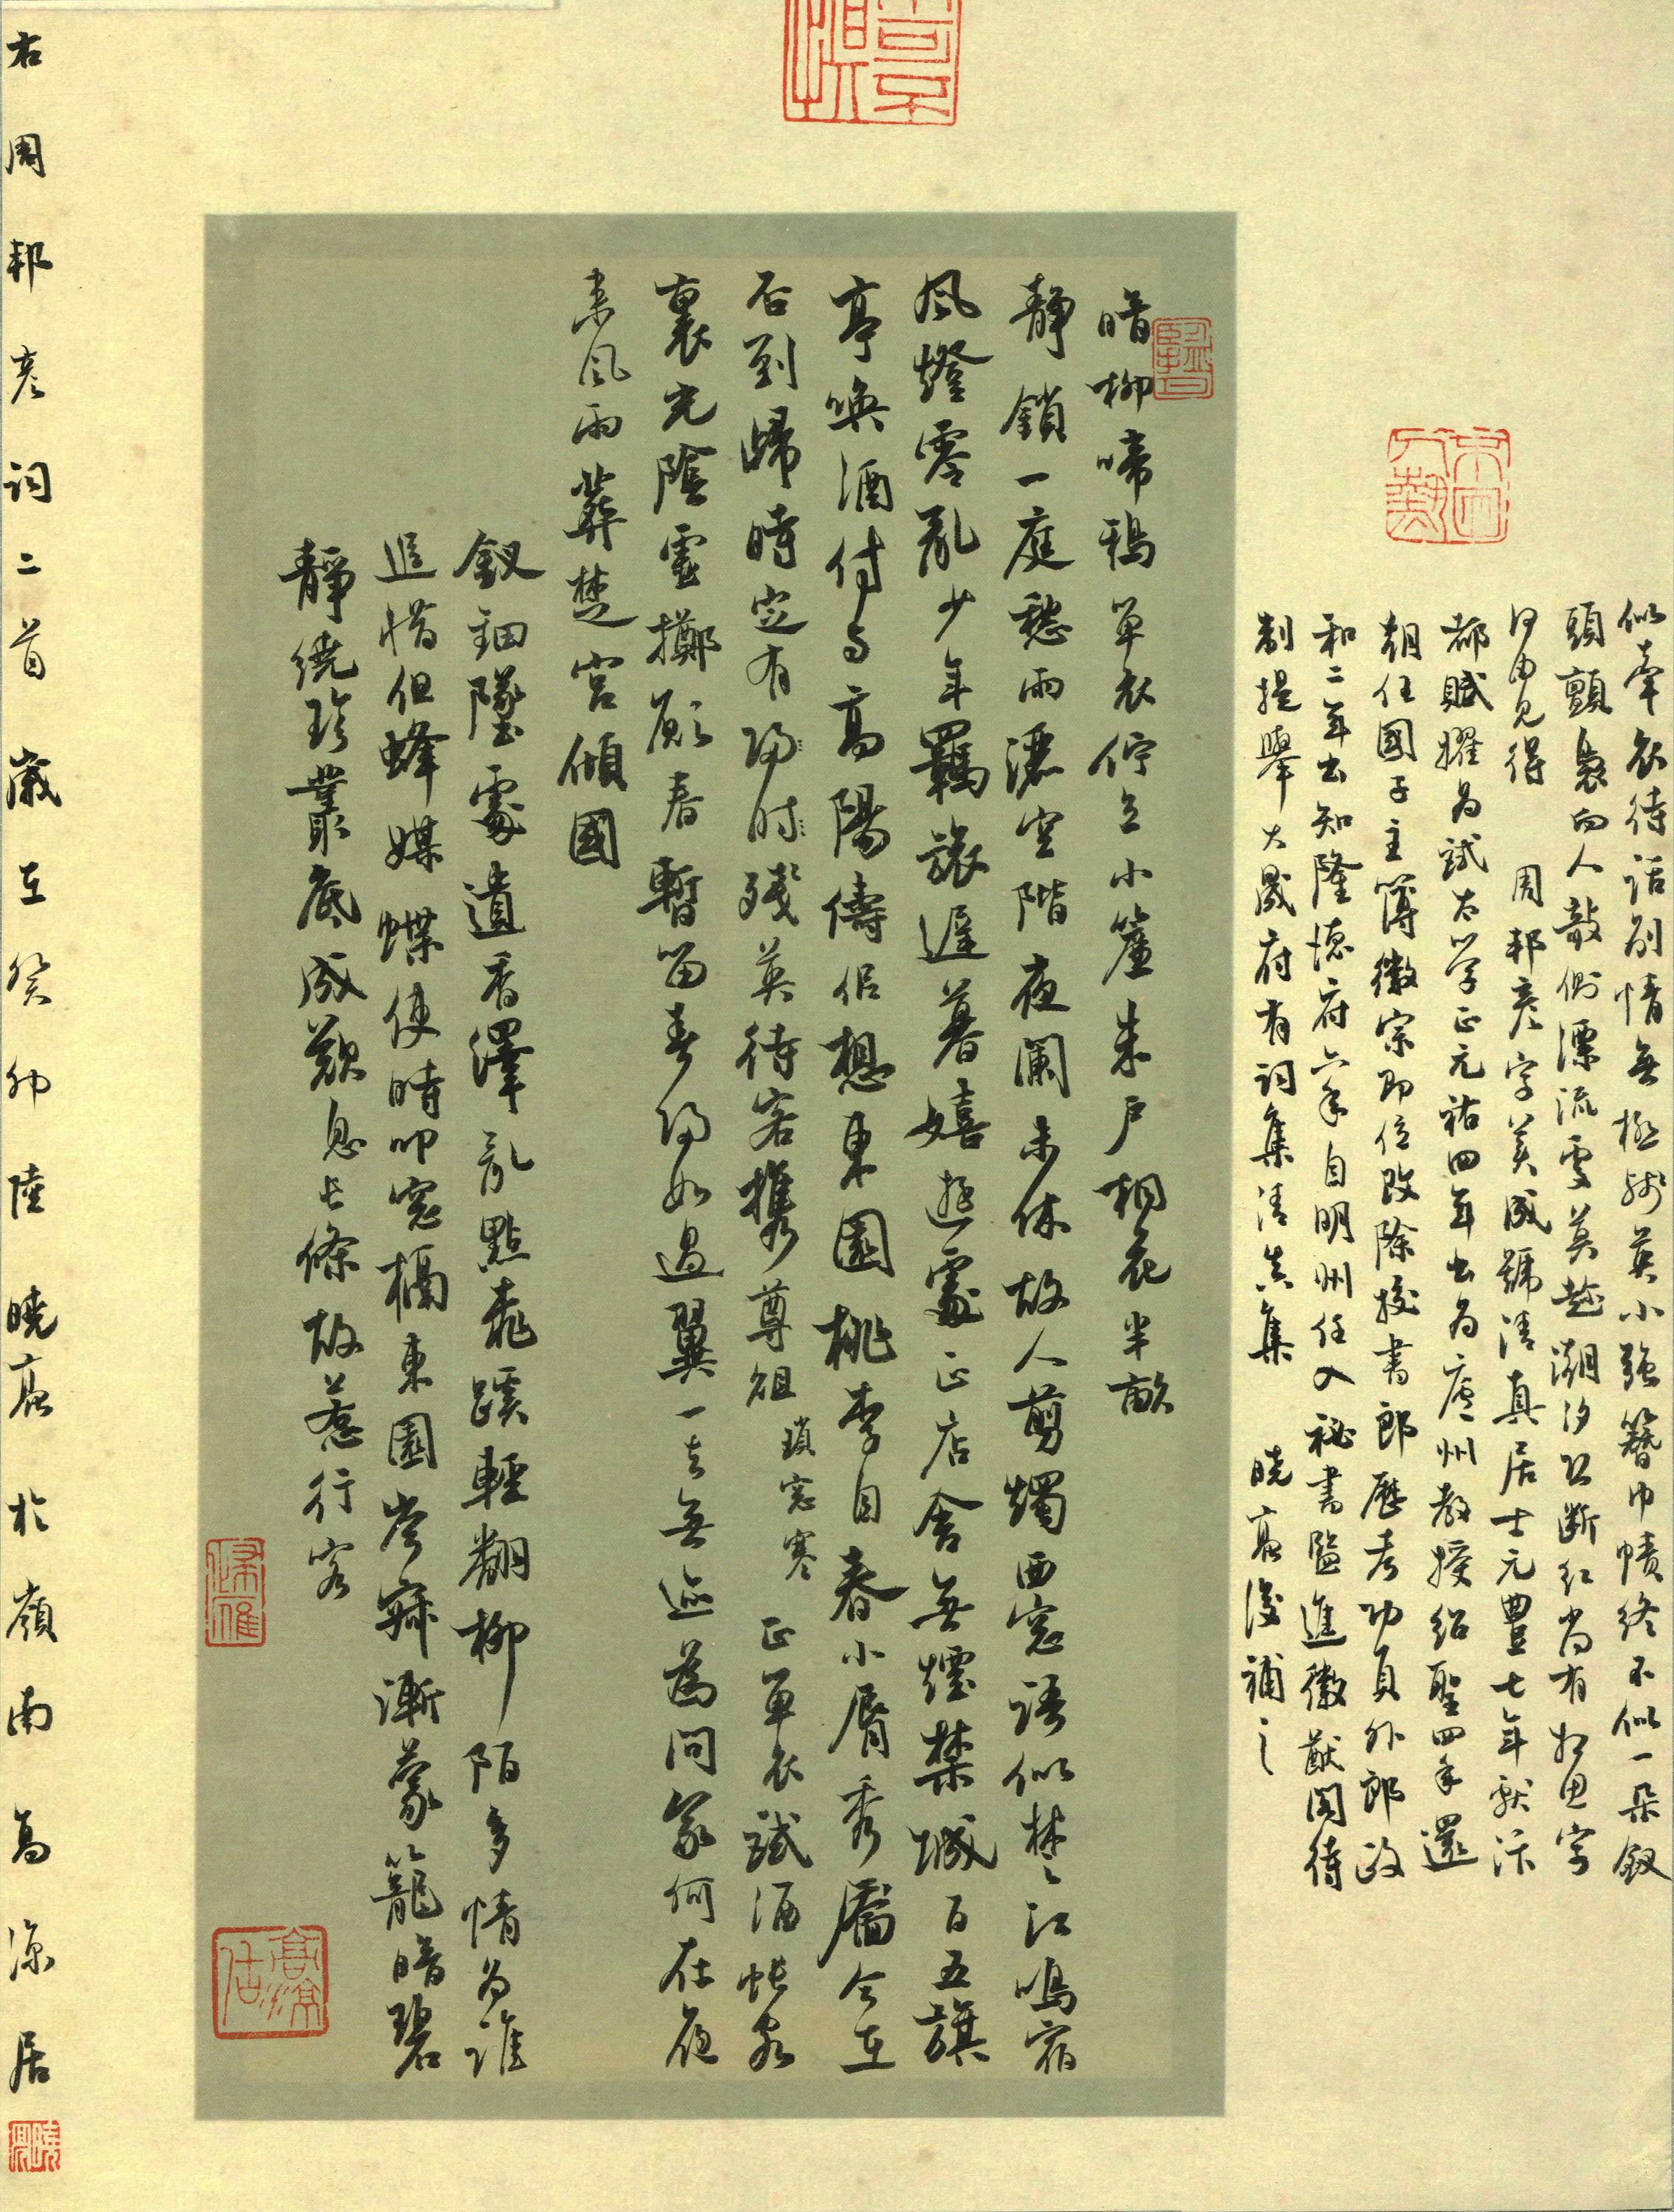 似牽衣待話別情無極殘英小強簪巾幘終不似一朵釵
頭顫裊向人欹側漂流處莫趁潮汐恐斷紅尚有相思字
何由見得 周邦彥字美成號清真居士元豐七年獻汴
都賦擢為試太學正元祐四年出為廬州教授紹聖四年還
朝任國子主簿徽宗即位改除校書郎歷考功員外郎政
和二年出知隆德府六年自明州任入祕書監進徽猷閣待
制提舉大晟府有詞集清真集 曉後補之
暗柳啼鴉單衣佇立小簾朱戶桐花半畝
靜鎖一庭愁雨灑空階夜闌未休故人剪燭西窗語似楚江鳴宿
風燈零亂少年羈旅遲暮嬉遊處正店舍無煙禁城百五旗
亭喚酒付與高陽儔侶想東園桃李自春小脣秀靨今在
否到歸時定有歸时殘英待客攜尊俎 瑣窗寒 正單衣試酒悵客
裏光陰虛擲願春暫留春歸如過翼一去無迹為問家何在夜
來風雨葬楚宮傾國
釵鈿墜處遺香澤亂點桃蹊輕翻柳陌多情為誰
追惜但蜂媒蝶使時叩窗槅東園岑寂漸蒙籠暗碧
靜繞珍叢底成歎息長條故惹行客
高涼居
右周邦彥詞二首歲在癸卯陸曉於嶺南高涼居